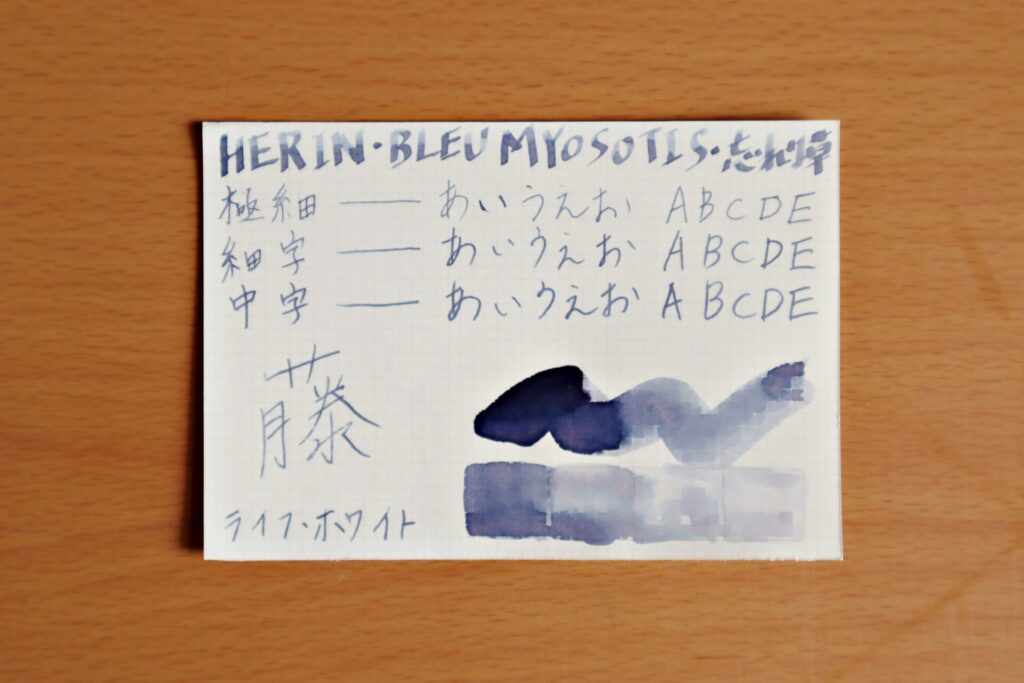 HERIN・BLEU MYOSOTIS・忘れな草
極細 ― あいうえお ABCDE
細字 ― あいうえお ABCDE
中字 ― あいうえお ABCDE
藤
ライフ・ホワイト